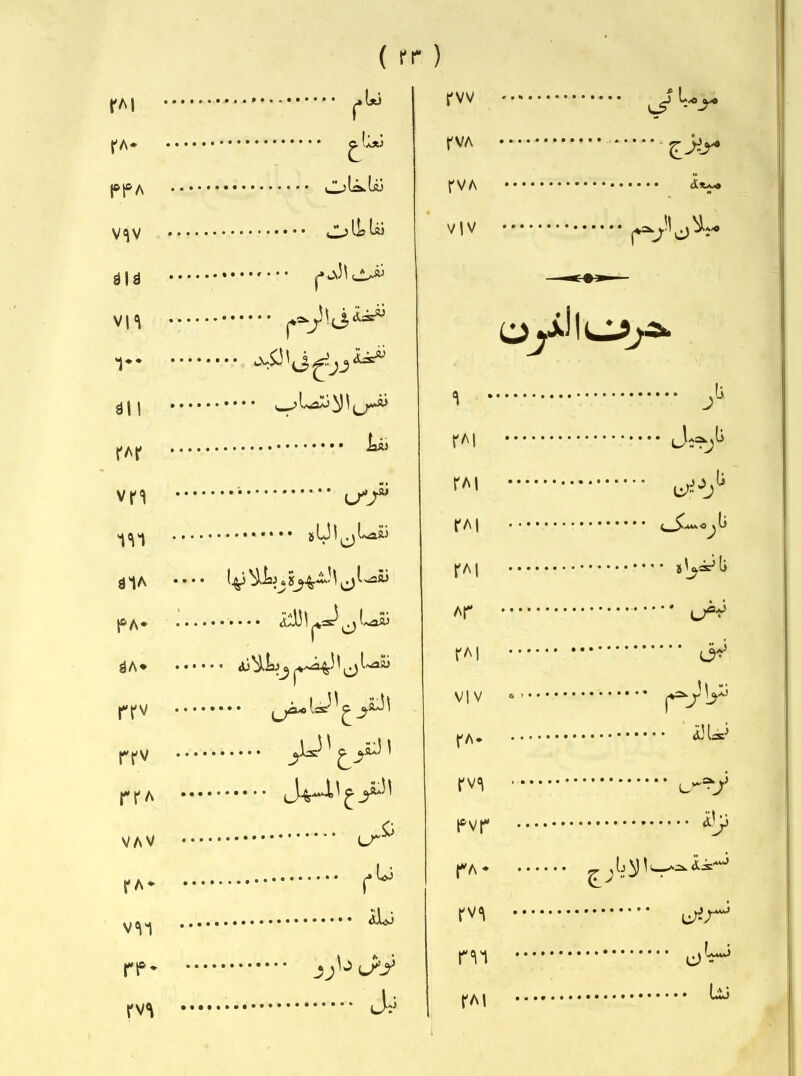 ( ٢٣ )
موميا ئي ٢٧٧
مويزج ٢٧٨
ميعة ٢٧٨
ميلان الرحم ٧١٧
حرف النون
نار ٩
نارجيل ٢٨١
ناردين ٢٨١
نارمسك ٢٨١
نانخواه ٢٨١
نبض ٨٢
نبق ٢٨١
نتو الرحم ٧١٧
نخالة ٢٨٠
نرجس ٢٧٩
نزلة ٤٧٣
نسخة حب الايارج ٣٨٠
نسرين ٢٧٩
نسيان ٣٩٦
نشا ٢٨١
نعام ٢٨١
نعناع ٢٨٠
نفاخات ٤٤٨
نفاطات ٧٩٧
نفث الدم ٥١٥
نفخة في الرحم ٧١٩
نفخة وريح في الكبد ٦٠٠
نفس الانتصاب ٥١١
نفط ٢٨٢
نقرس ٧٢٩
نقصان الباه ٦٩٦
نقصان الشهوة وبطلانها ٥٦٨
نقصان لحم اللثة ٤٨٠
نقصان الهضم وبطلانه ٥٨٠
النقوع الحامض ٣٢٧
النقوع الحلو ٣٢٧
النقوع المسهل ٣٢٨
نكس ٧٨٧
نمام ٢٨٠
نملة ٧٩٦
نوش دارو ٣٤٠
نيل ٢٧٩